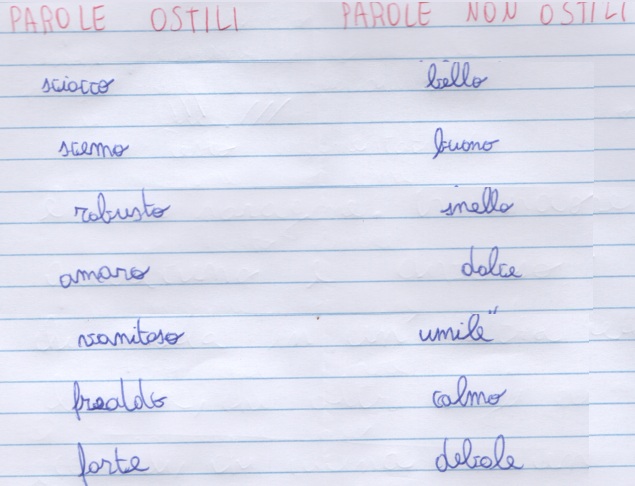 PAROLE OSTILI PAROLE NON OSTILI
sciocco bello
scemo buono
robusto snello
amaro dolce
vanitoso umile"
freddo calmo
forte debole